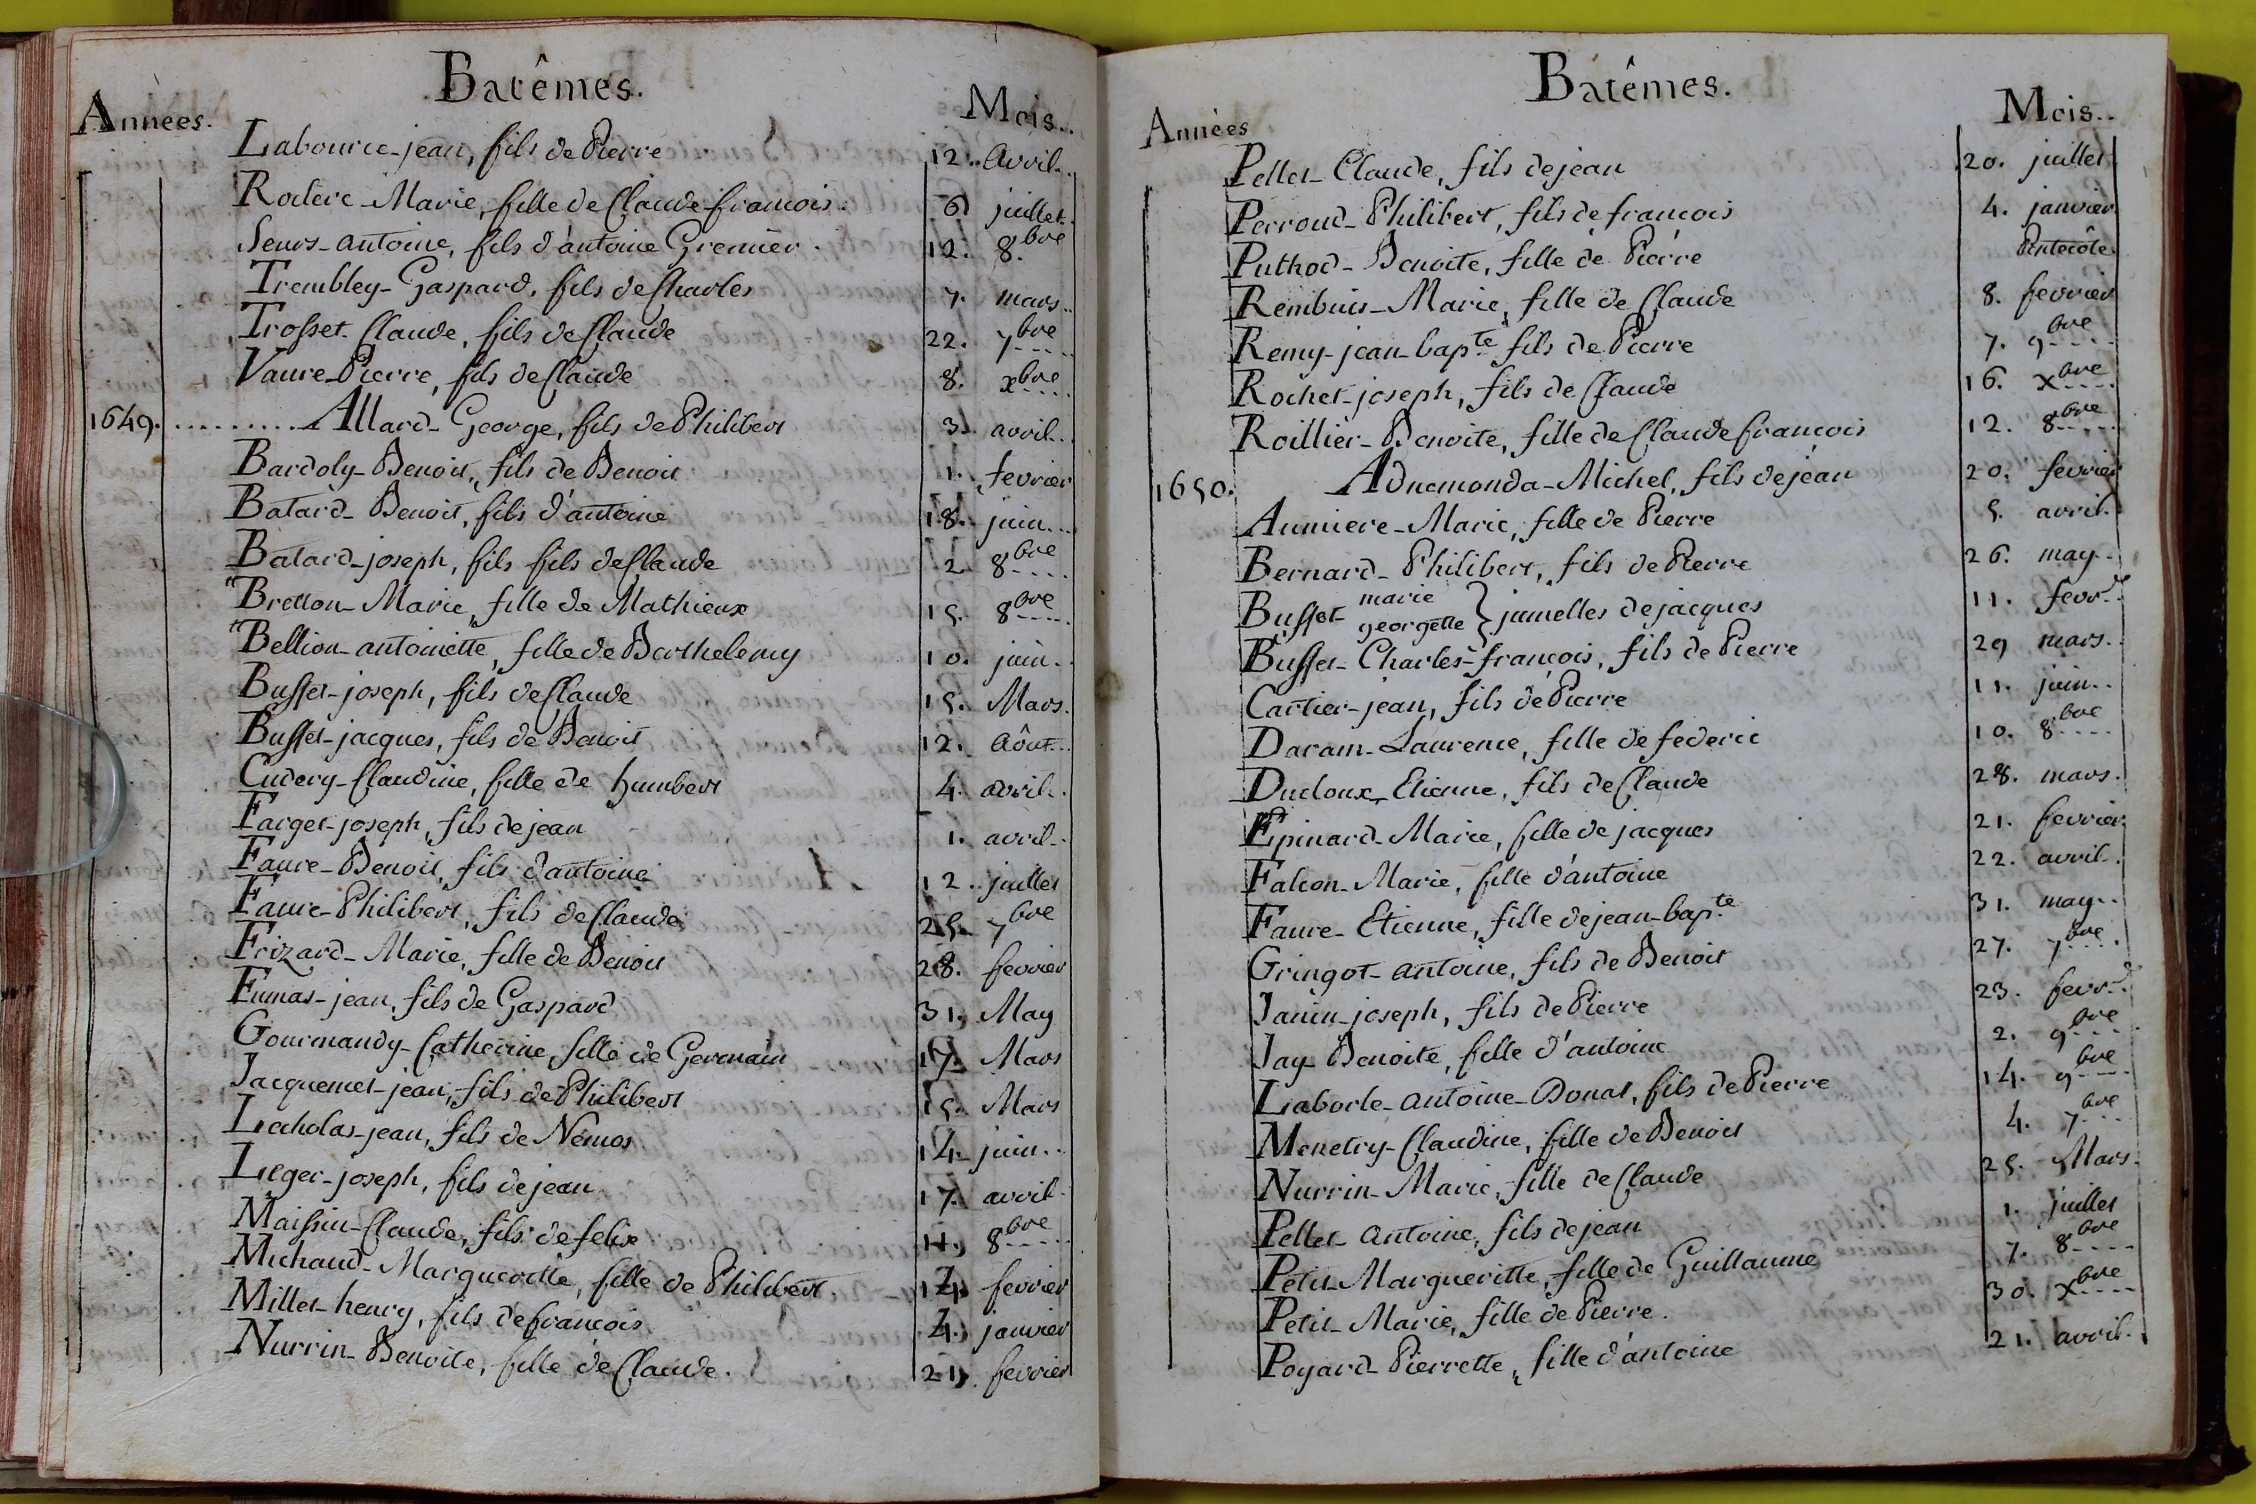 Batêmes.
Années. Mois..
Labourie-jean, fils de Pierre 12.. avril..
Rodere-Marie, fille de Claude-francois. 6. juillet.
Seurs-antoine, fils d'antoine Grenier. 12. 8.bre
Trembley-Gaspard, fils de Charles 7. mars..
Trosset-Claude, fils de Claude 22. 7bre
Vaure-Pierre, fils de Claude 8. xbre
1649. .......... Allard-George, fils de Philibert 3. avril..
Bardoly-Benoit, fils de Benoit 1. fevrier
Batard-Benoit, fils d'antoine 18. juin...
Batard-joseph, fils fils de Claude 2. 8bre
Bretton-Marie, fille de Mathieux 15. 8bre
Bellion-antoinette, fille de Barthelemy 10. juin..
Buffet-joseph, fils de Claude 15. Mars.
Buffet-jacques, fils de Benoit 12. Aôut..
Cudery-Claudine, fille de humbert 4. avril..
Farget-joseph, fils de jean 1. avril..
Faure-Benoit, fils d'antoine 12.. juillet
Faure-Philibert, fils de Claude 25. 7bre
Frizard-Marie, fille de Benoit 28. fevrier
Fumas-jean, fils de Gaspard 31. May
Gourmandy-Catherine, fille de Germain 17. Mars
Jacquemet-jean, fils de Philibert 15. Mars
Lacholas-jean, fils de Némos 14. juin..
Leger-joseph, fils de jean 17. avril.
Maissin-Claude, fils de felix 11. 8bre
Michaud-Margueritte, fille de Philibert. 14. fevrier
Millet-henry, fils de francois 4. janvier
Nurrin-Benoite, fille de Claude. 21. fevrier
Batêmes.
Années Mois..
Pellet-Claude, fils de jean 20. juillet.
Perroud-Philibert, fils de francois 4. janvier
Puthod-Benoite, fille de Pierre Pentecôte
Rembuis-Marie, fille de Claude 8. fevrier
Remy-jean-bapte fils de Pierre 7. 9bre
Rochet-joseph, fils de Claude 16. xbre
Roillier-Benoite, fille de Claude francois 12. 8bre
1650. Adnemonda-Michel, fils de jean 20. fevrier
Aumiere-Marie, fille de Pierre 5. avril.
Bernard-Philibert, fils de Pierre 26. may..
Buffet- marie georgette } jumelles de jacques 11. fevr.
Buffet-Charles-francois, fils de Pierre 29 mars..
Cartier-jean, fils de Pierre 11. juin..
Daram-Laurence, fille de federic 10. 8bre
Ducloux-Etienne, fils de Claude 28. mars.
Epinard-Marie, fille de jacques 21. fevrier.
Falcon-Marie, fille d'antoine 22. avril..
Faure-Etienne, fille de jean-bapte 31. may..
Gringot-antoine, fils de Benoit 27. 7bre
Janin-joseph, fils de Pierre 23. fevr.
Jay-Benoite, fille d'antoine 2. 9bre
Laborle-antoine-Donat, fils de Pierre 14. 9bre
Menetry-Claudine, fille de Benoit 4. 7bre
Nurrin-Marie, fille de Claude 25. Mars.
Pellet-antoine, fils de jean 1. juillet
Petit-Margueritte, fille de Guillaume 7. 8bre
Petit-Marie, fille de Pierre. 30. xbre
Poyard-Pierrette, fille d'antoine 21. avril.